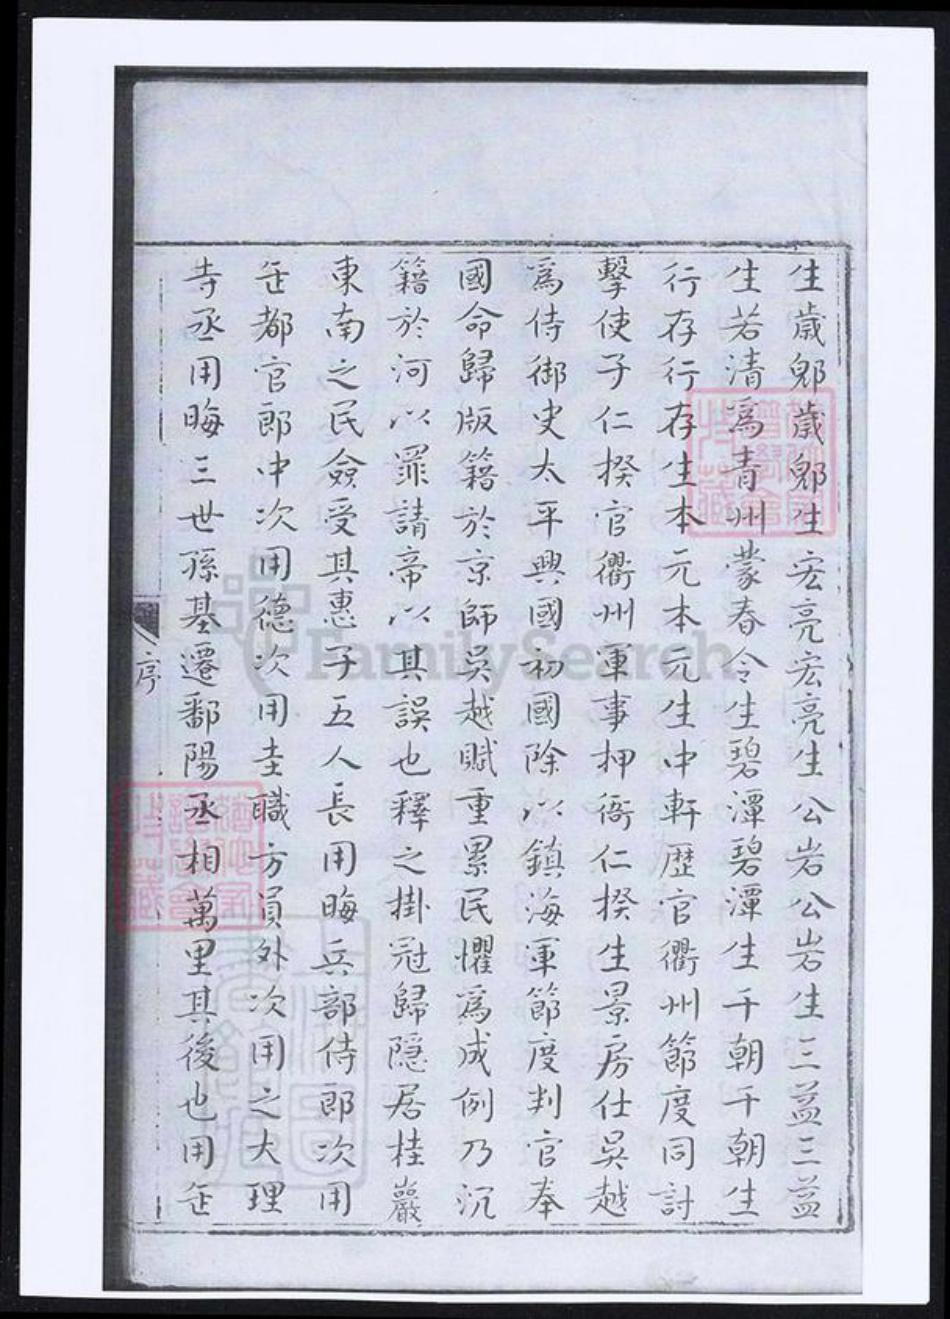 生歲郢歲郢生宏亮宏亮生公岩公岩生三益三益
生若清爲青州蒙春令生碧潭碧潭生千朝千朝生
行存行存生本元本元生中軒歷官衢州節度同討
擊使子仁揆官衢州軍事押衙仁揆生景房仕吳越
爲侍御史太平興國初國除以鎮海軍節度判官奉
國命歸版籍於京師吳越賦重累民懼爲成例乃沉
籍於河以罪請帝以其誤也釋之掛冠歸隱居桂巖
東南之民僉受其惠子五人長用晦兵部侍郎次用
缶都官郎中次用德次用圭職方員外次用之大理
寺丞用晦三世孫基遷鄱陽丞相萬里其後也用缶
序
FamilySearch